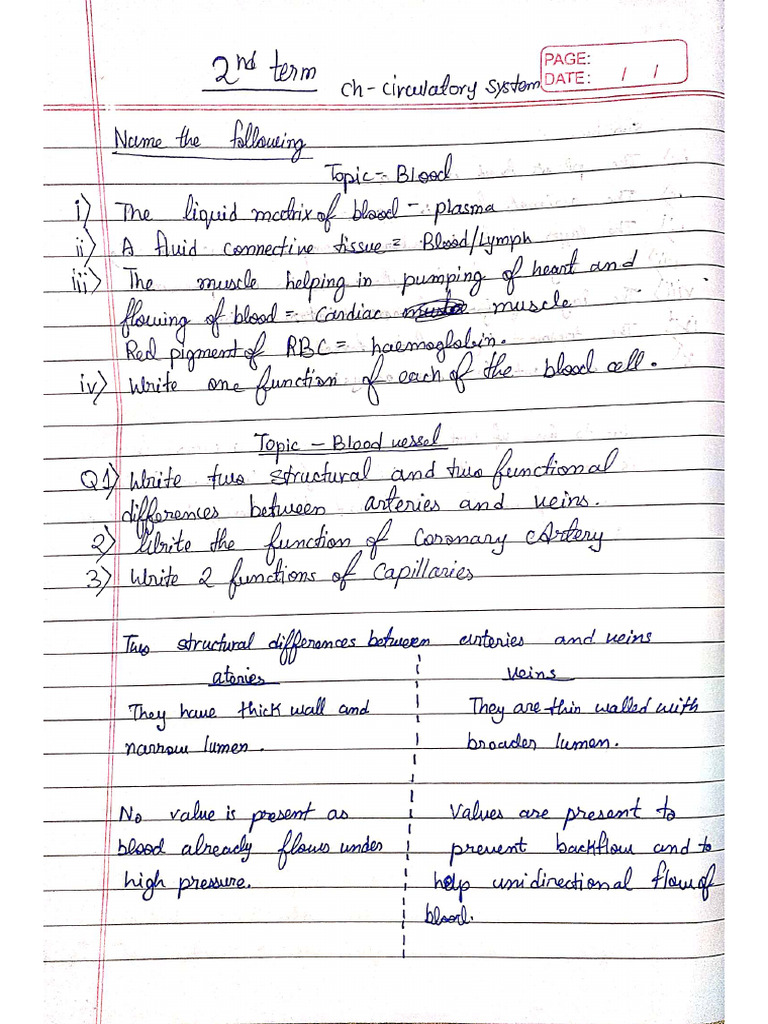 2nd term
Ch - Circulatory System
PAGE:
DATE: / /
Name the following
Topic - Blood
i) The liquid matrix of blood - plasma
ii) A fluid connective tissue = Blood/Lymph
iii) The muscle helping in pumping of heart and
flowing of blood = Cardiac muscle
Red pigment of RBC = haemoglobin.
iv) Write one function of each of the blood cell.
Topic - Blood vessel
Q1) Write two structural and two functional
differences between arteries and veins.
2) Write the function of Coronary Artery
3) Write 2 functions of Capillaries
Two structural differences between arteries and veins
atories
veins
They have thick wall and
narrow lumen.
They are thin walled with
broader lumen.
No value is present as
blood already flows under
high pressure.
Values are present to
prevent backflow and to
help unidirectional flow of
blood.